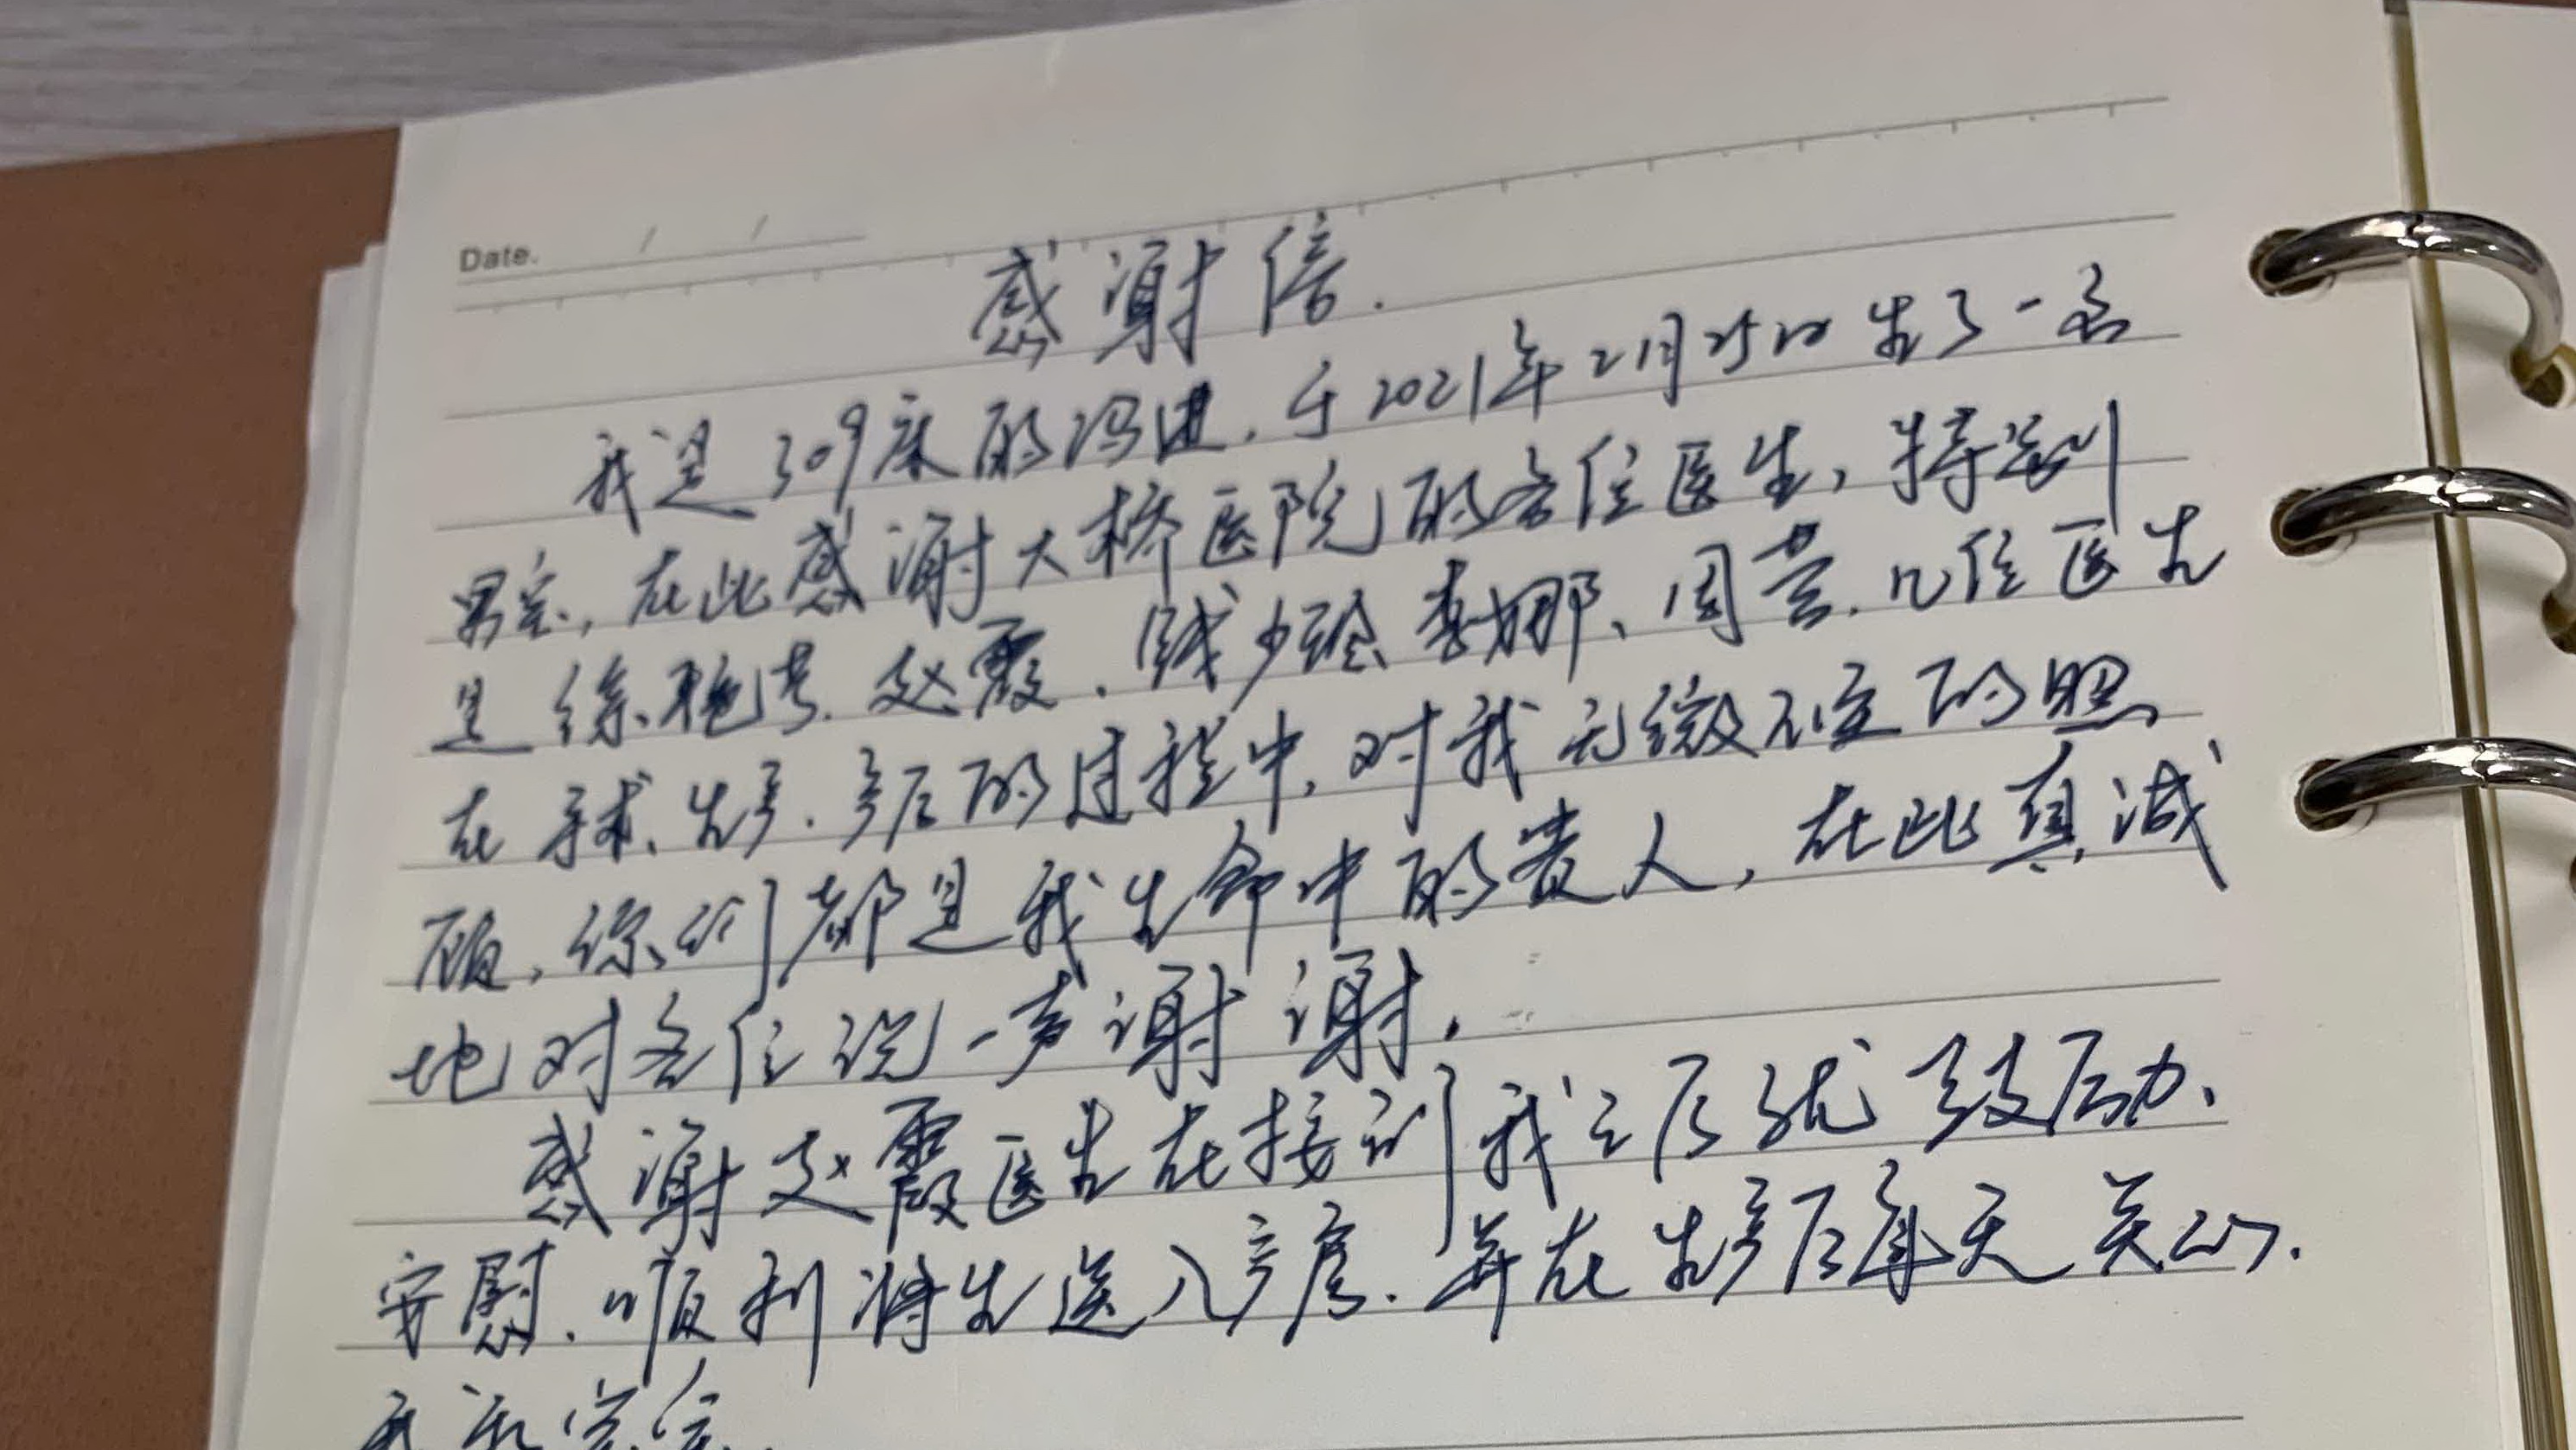 Date. / /
感谢信.
我是309床的冯进.于2021年2月25日生了一名
男宝,在此感谢大桥医院的各位医生,特别
是徐艳 赵霞、钱 李娜、周 几位医生
在手术、生产、产后的过程中,对我无微不至的照
顾、你们都是我生命中的贵人,在此真诚
地对各位说一声谢谢.
感谢赵霞医生在接到我之后就鼓励、
安慰.顺利将生送入产房.并在生产后每天关心.
我和宝宝.